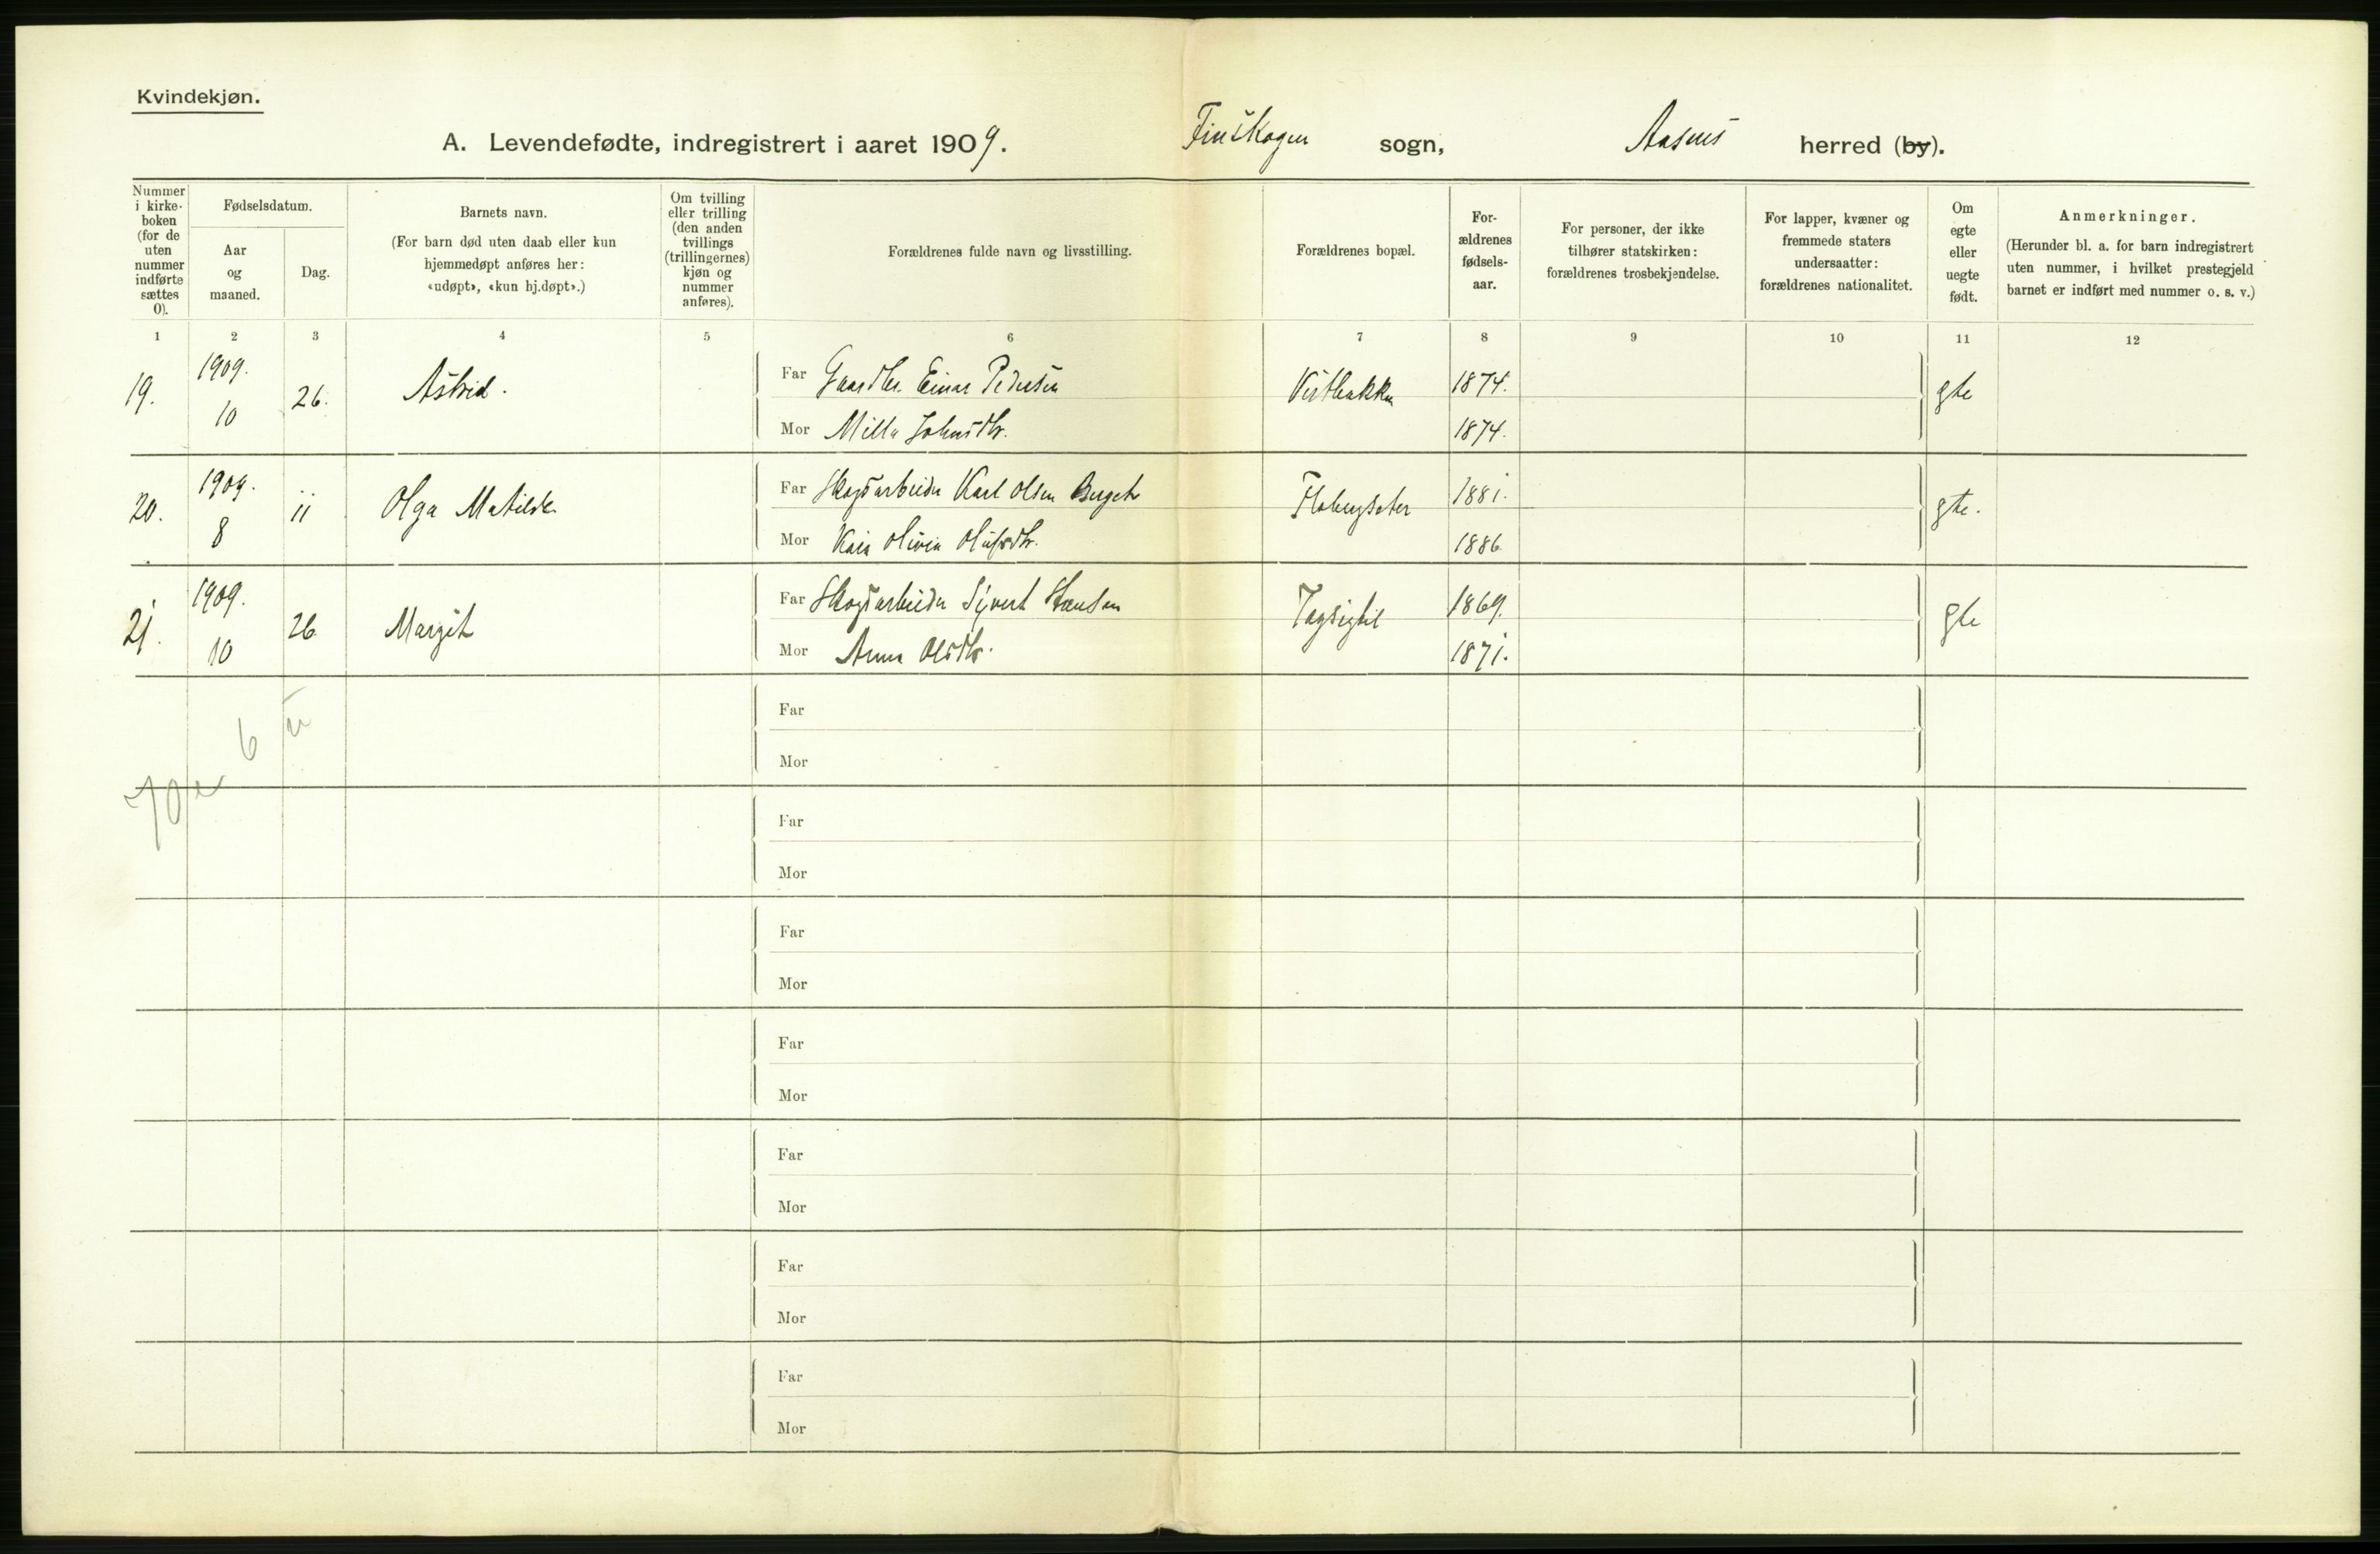 Kvindekjøn.
A. Levendefødte, indregistrert i aaret 1909. Finskogen sogn, Aasnes herred (by).
Nummer i kirkeboken (for de uten nummer indførte sættes 0).
Fødselsdatum.
Aar og maaned.
Dag.
Barnets navn.
(For barn død uten daab eller kun hjemmedøpt anføres her: «udøpt», «kun hj.døpt».)
Om tvilling eller trilling (den anden tvillings (trillingernes) kjøn og nummer anføres).
Forældrenes fulde navn og livsstilling.
Forældrenes bopæl.
Forældrenes fødselsaar.
For personer, der ikke tilhører statskirken: forældrenes trosbekjendelse.
For lapper, kvæner og fremmede staters undersaatter: forældrenes nationalitet.
Om egte eller uegte født.
Anmerkninger.
(Herunder bl. a. for barn indregistrert uten nummer, i hvilket prestegjeld barnet er indført med nummer o. s. v.)
1 2 3 4 5 6 7 8 9 10 11 12
19. 1909. 10 26. Astrid. Far Gaardbr. Einar Pedersen 1874. gte
Mor Milla Johnsdtr. 1874.
20. 1909. 8 11 Olga Matilde Far Skogsarbeider Karl Olsen Berget Flobergseter 1881. gte.
Mor Kaia Olivia Olufsdtr. 1886
21. 1909. 10 26 Margit Far Skogsarbeider Syvert Hansen 1869. gte
Mor Anna Olsdtr. 1871.
6
Far
Mor
Far
Mor
Far
Mor
Far
Mor
Far
Mor
Far
Mor
Far
Mor